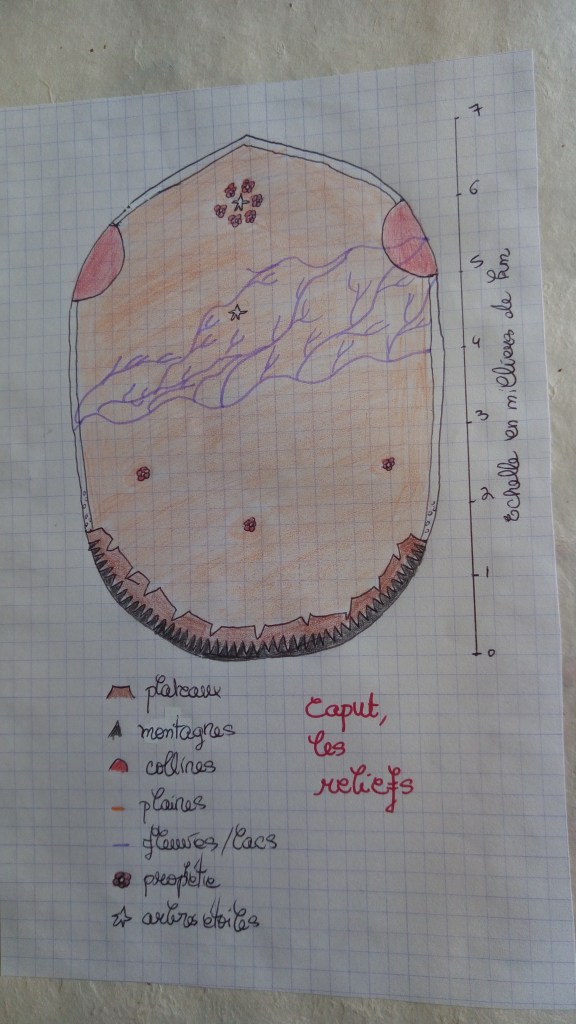 7
6
5
4
3
2
1
0
Echelle en milliers de km
plateaux
montagnes
collines
plaines
fleuves/lacs
arbres étoiles
Caput,
les
reliefs